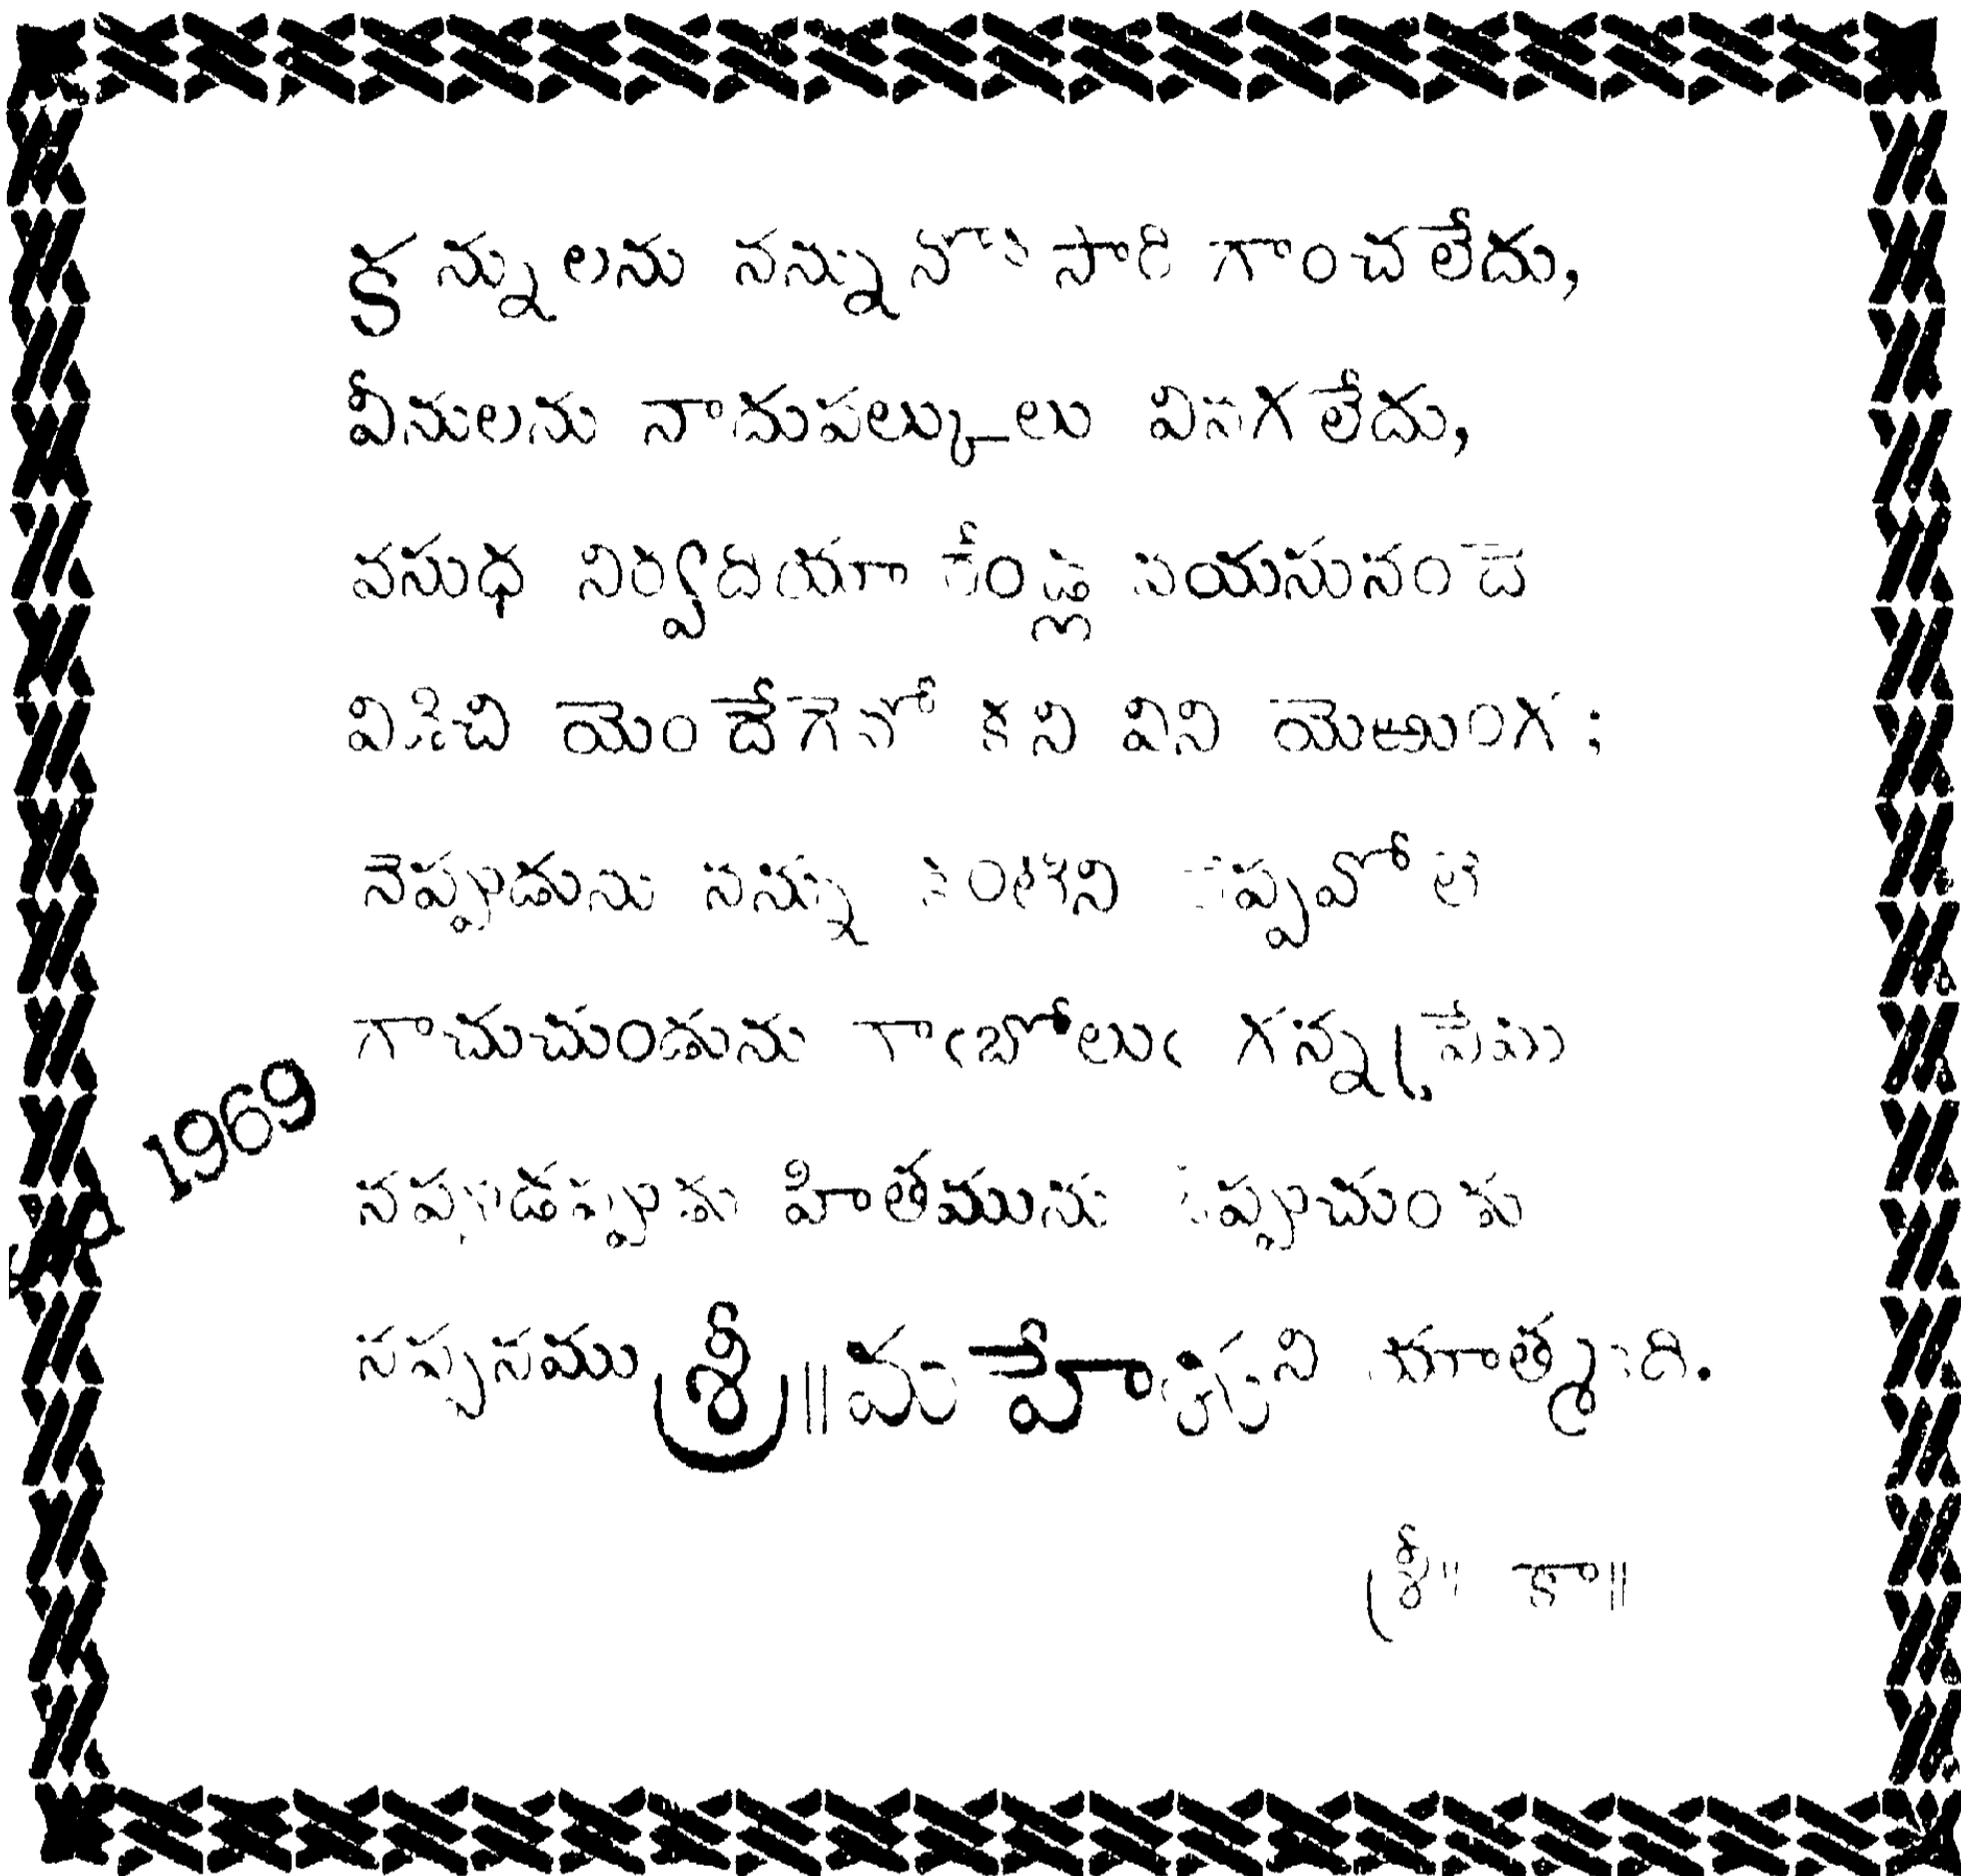 కన్నులను నన్ను నొకసారి గాంచలేదు,
వీనులను నాదుపల్కులు వినగలేదు,
వసుధ నిర్వదియార్గేండ్ల వయసునందె
విడిచి యెందేగెనో కని విని యెఱుంగ;
నెప్పుడును నన్ను కంటికిని ఱెప్పవోలె
గాచుచుండును గాఁబోలుఁ గన్నప్రేమ
నప్పుడప్పుడు హితమును జెప్పుచుండు
నప్పనము శ్రీ॥ మహే
శ్రీ॥ కా॥
1969